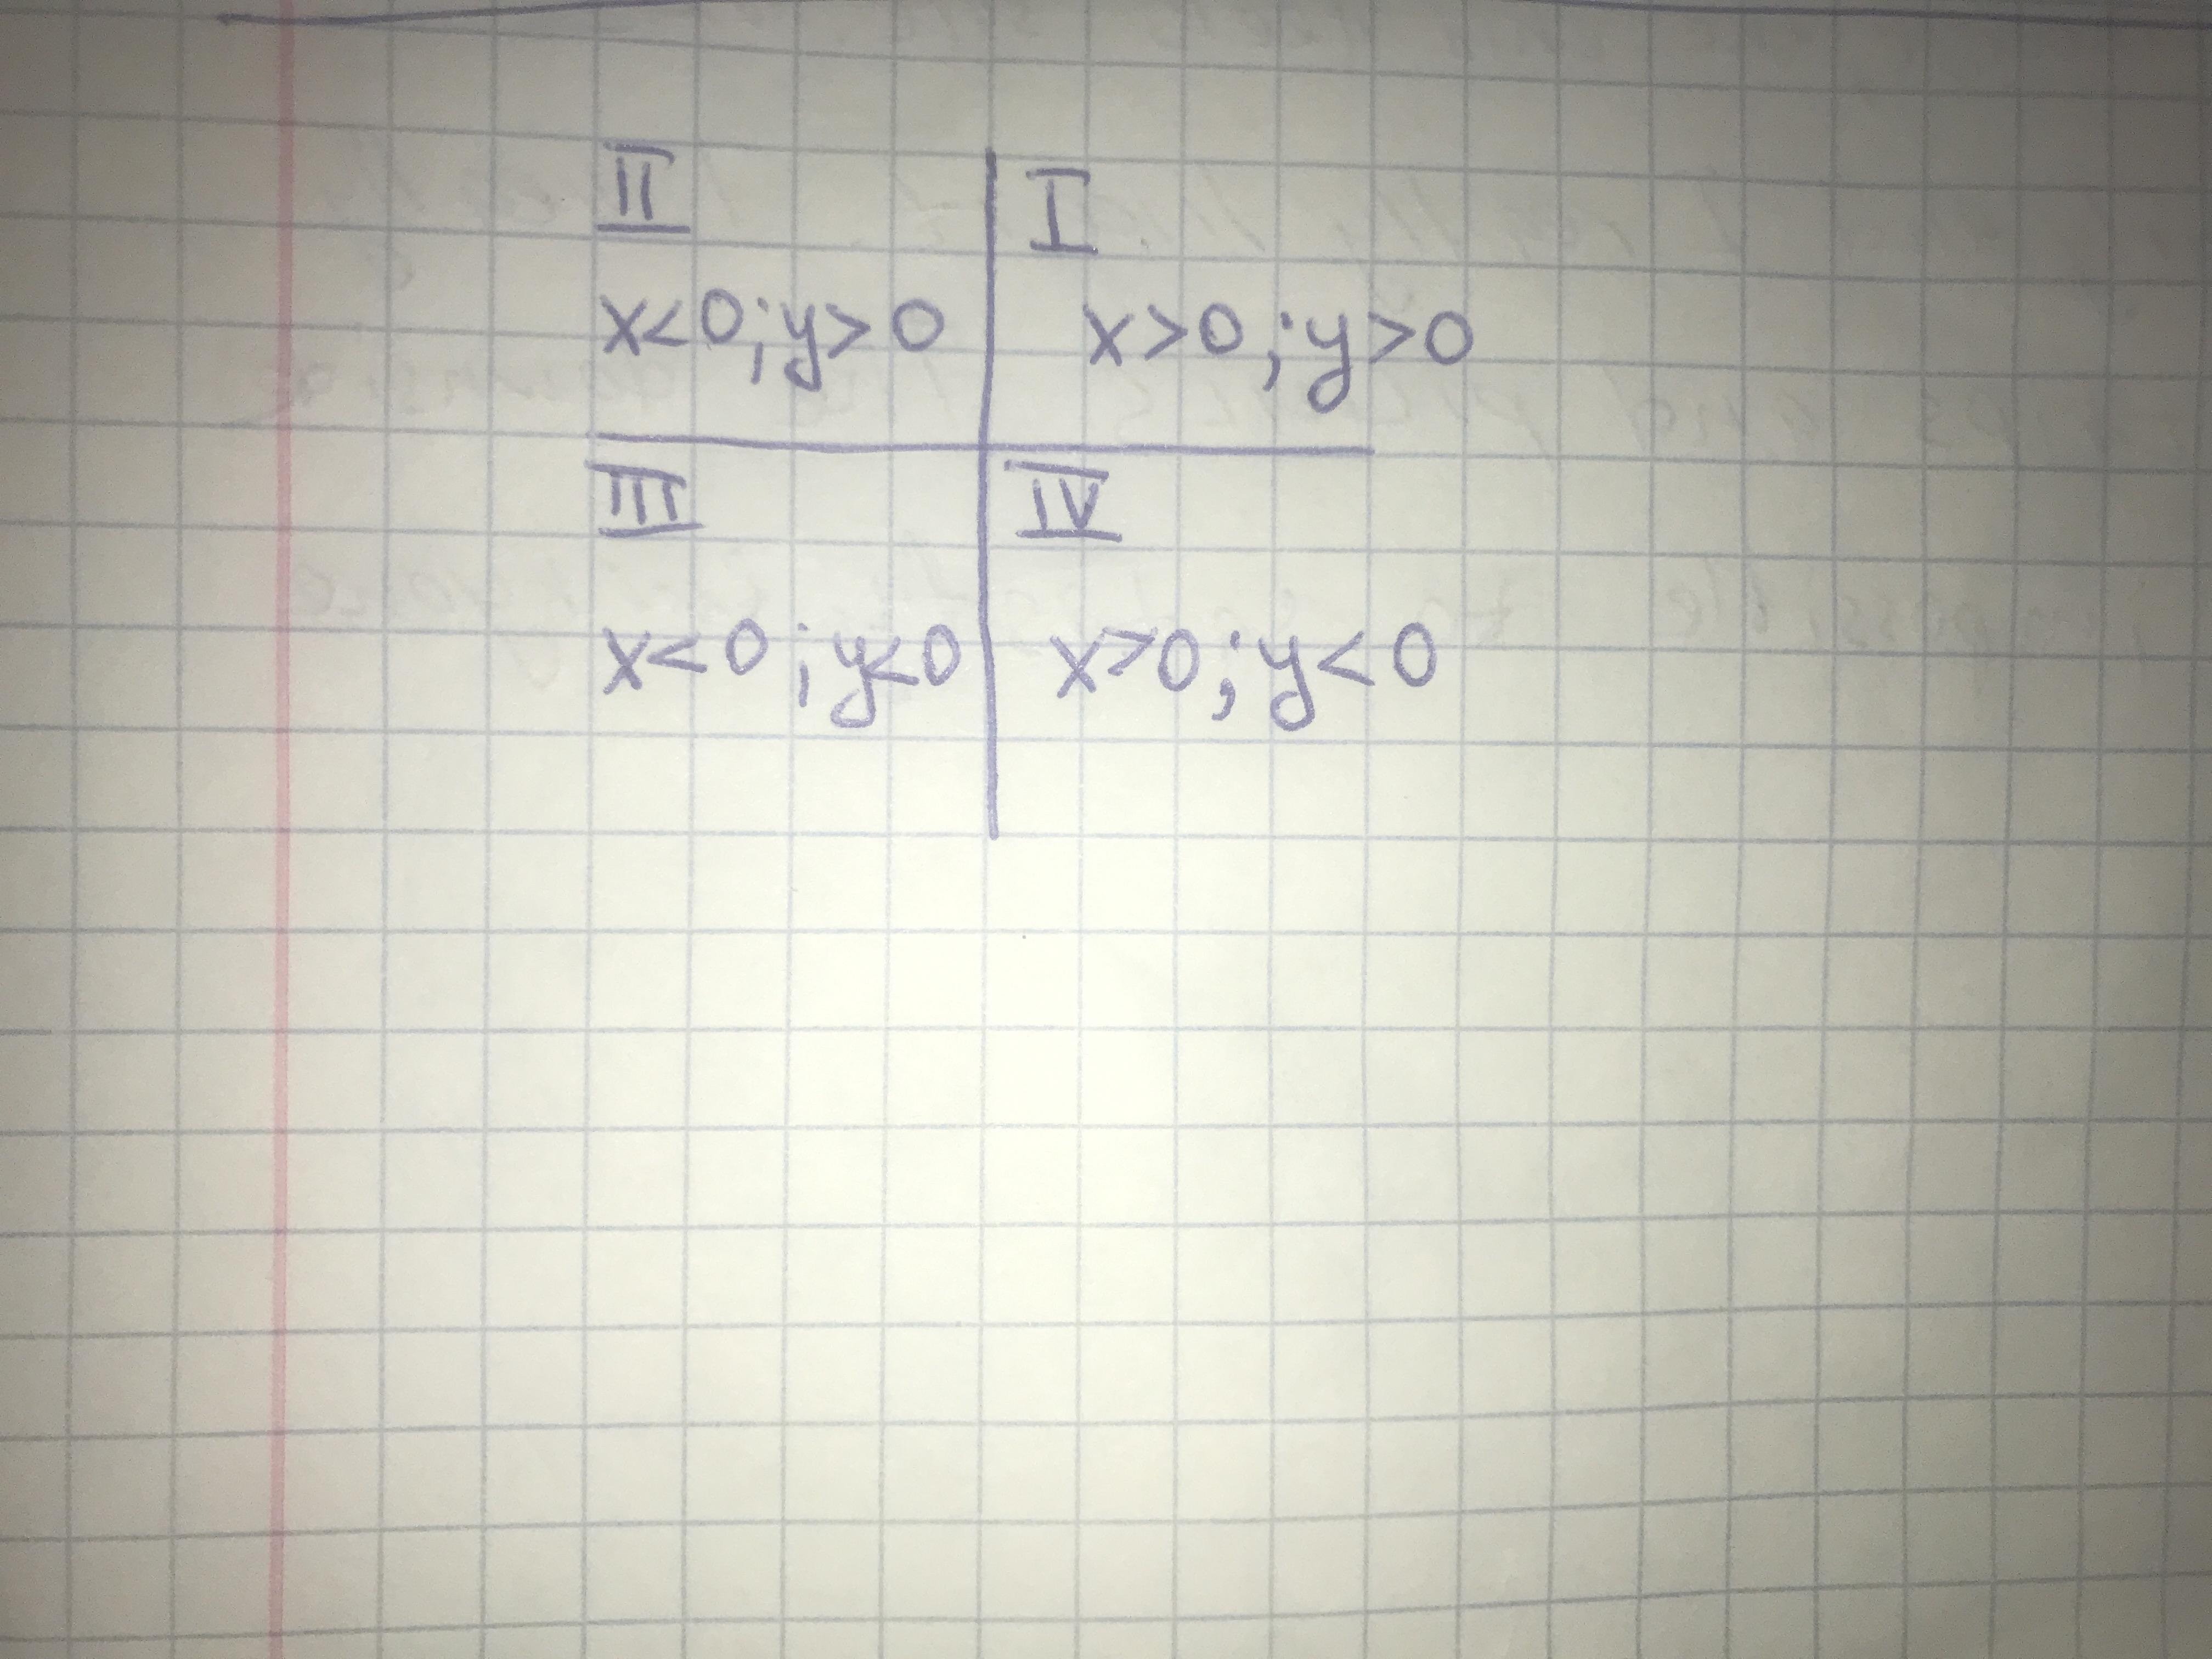 II I
x<0;y>0 x>0;y>0
III IV
x<0;y<0 x>0;y<0